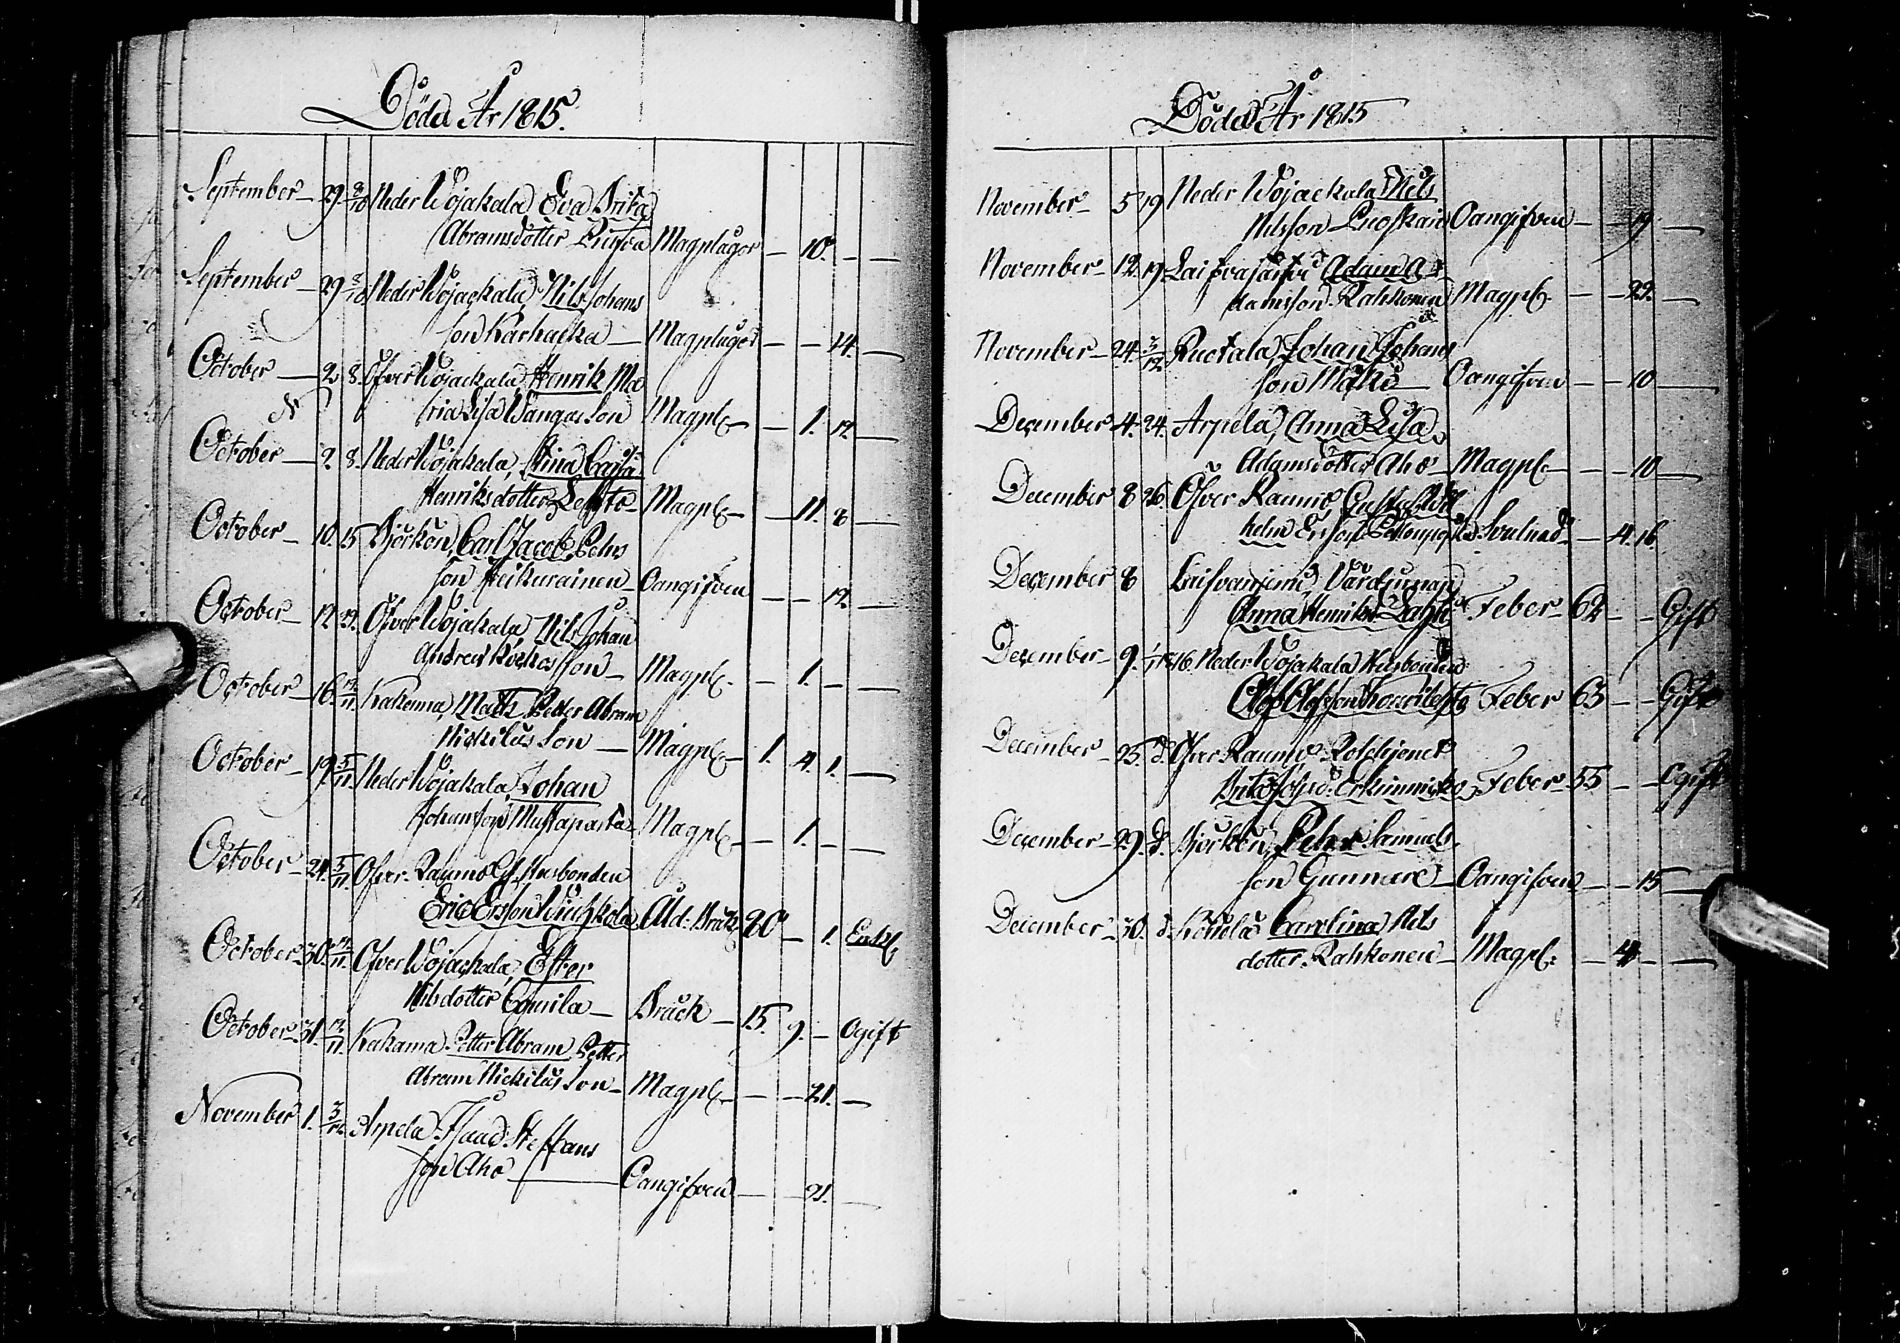 Döda År 1815.
September 29 8/10 Neder Wojakala Eva Brita
Abramsdotter Magplågor 10.
September 29 8/10 Neder Wojackala Nils Johans
son Karhacka Magplågor 14.
October 2 8. Öfver Wojackala, Henrik Ma
ria Lisa Wangas Son Magpl. 1. 12.
October 2 8. Neder Wojakala, Stina Cajsa
Henriksdotter Magpl. 11. 8
October 10. 15 Björkön, Carl Jacob Pehrs
son Heikurainen Oangifven 12.
October 12 22. Öfver Wojakala, Nils Johan
Anders Son Magpl. 1.
October 16. 12/11 Kakama, Matts Petter Abram
Nickilus Son Magpl. 1. 4. 1.
October 19 5/11 Neder Wojakala, Johan
Johansson Mustaparta Magpl. 1.
October 24. 5/11 Öfver Raumo Gl. Husbonden
Eric Ersson Ålld. Bräck. 80 1. Enkl.
October 30. 12/11 Öfver Wojackala, Ester
Nilsdotter Bråck 15. 9. Ogift
October 31. 12/11 Kakama Petter Abram Petter
Abram Nickilus Son Magpl. 21.
November 1. 3/12 Arpela Isaac Steffans
son Aho Oangifven 21.
Döda År 1815
November 5 19 Neder Wojackala Nils
Nilsson Oangifven 19
November 12. 19 Laivajärvi Adam A
damsson Rahkonen Magpl. 22.
November 24. 3/12 Ruotala, Johan Johans
son Mäki Oangifven 10
December 4. 24. Arpela, Anna Lisa
Adamsdotter Aho Magpl. 10
December 8 26. Öfver Raumo, Gustaf Wil
helm Ersson Svulnad 4. 16
December 8 Värdinnan
Anna Henriksd. Feber 62 Gift
December 9. 1/1 1816 Neder Wojakala Husbonden
Olof Olofsson Feber 63 Gift
December 25. d. Öfver Raumo
Brita Johsd. Feber 55 Ogift
December 29. d. Björkön, Pehr Samuels
son Gunnare Oangifven 15
December 30. d. Carolina Nils
dotter Rahkonen Magpl. 4